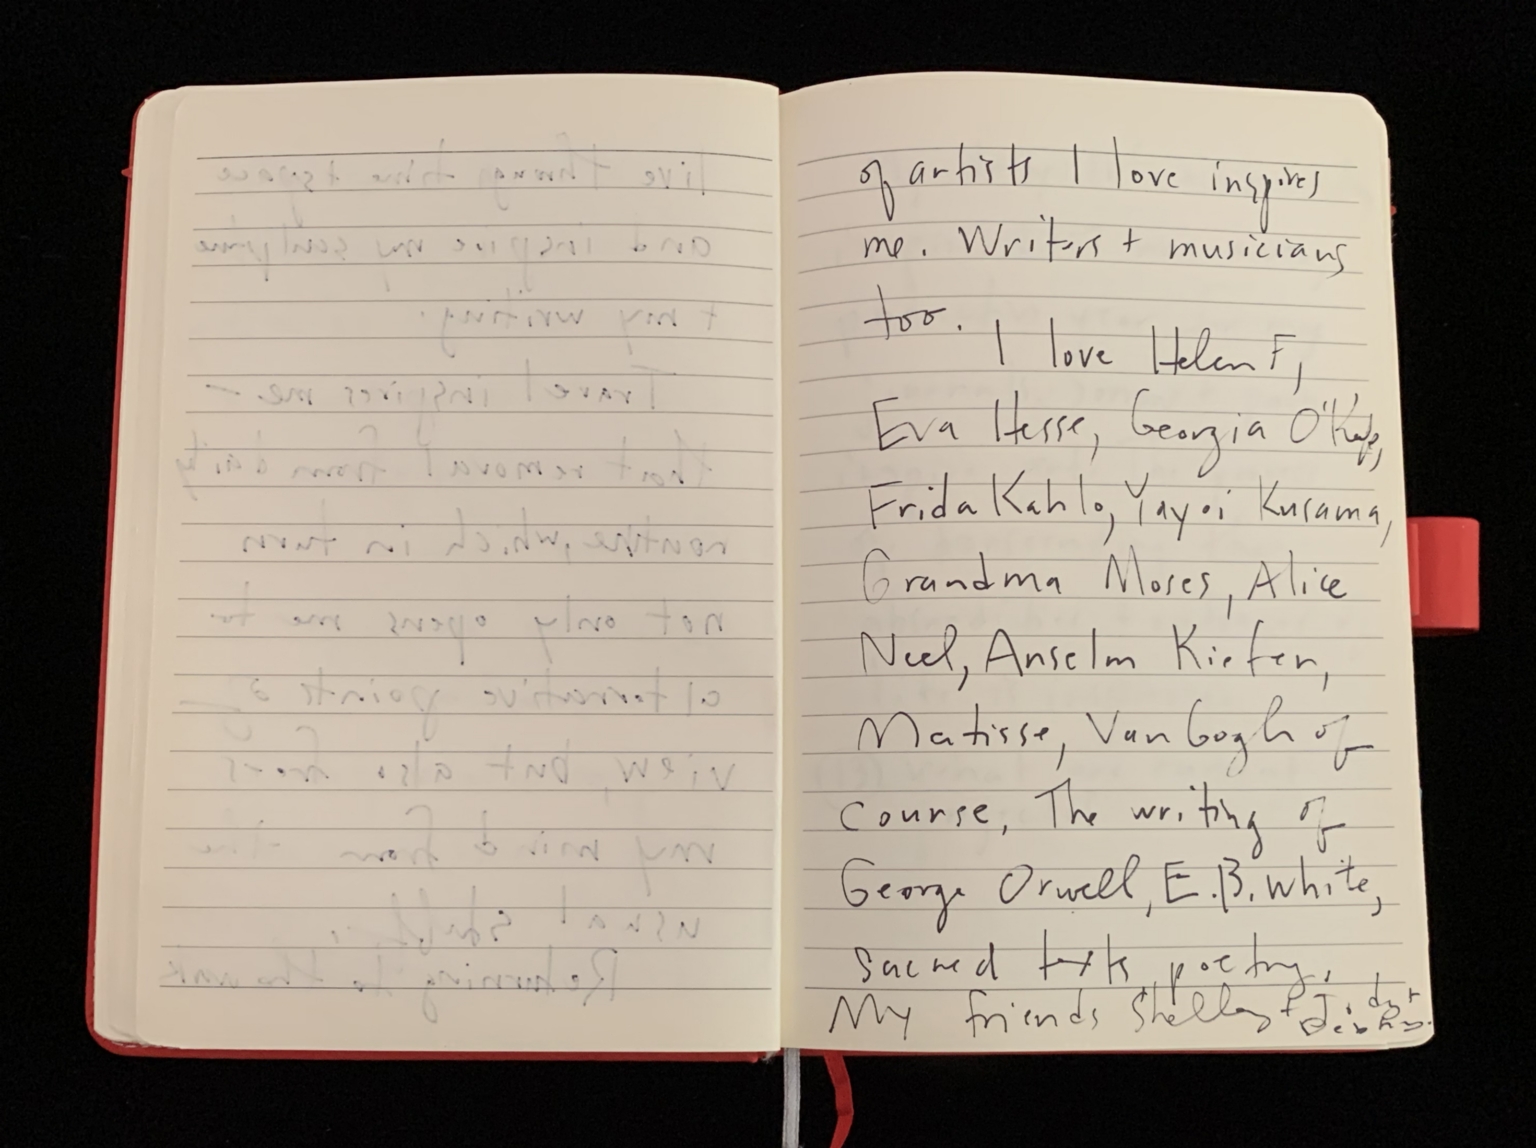 of artists I love inspires
me. Writers + musicians
too.
I love Helen F,
Eva Hesse, Georgia O'Keefe,
Frida Kahlo, Yayoi Kusama,
Grandma Moses, Alice
Neel, Anselm Kiefer,
Matisse, Van Gogh of
course, The writing of
George Orwell, E.B. White,
sacred texts, poetry.
My friends Shelley +